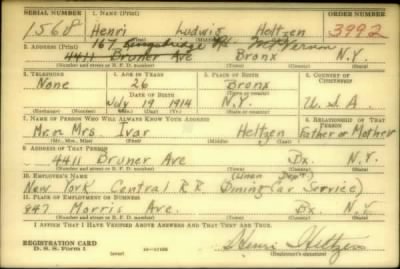 SERIAL NUMBER 1. NAME (Print) ORDER NUMBER
1568 Henri Ludwig Heltzen 3992
(First) (Middle) (Last)
167
2. ADDRESS (Print)
4411 Bruner Ave Bronx N.Y.
(Number and street or R. F. D. number) (Town) (County) (State)
3. TELEPHONE 4. AGE IN YEARS 5. PLACE OF BIRTH 6. COUNTRY OF CITIZENSHIP
None 26 Bronx
DATE OF BIRTH (Town or county)
July 19 1914 N.Y. U.S.A.
(Exchange) (Number) (Mo.) (Day) (Yr.) (State or country)
7. NAME OF PERSON WHO WILL ALWAYS KNOW YOUR ADDRESS 8. RELATIONSHIP OF THAT PERSON
Mr. n Mrs. Ivar Heltzen Father or Mother
(Mr., Mrs., Miss) (First) (Middle) (Last)
9. ADDRESS OF THAT PERSON
4411 Bruner Ave Bx. N.Y.
(Number and street or R. F. D. number) (Town) (County) (State)
10. EMPLOYER'S NAME (Linen Dept.)
New York Central R.R. (Dining Car Service)
11. PLACE OF EMPLOYMENT OR BUSINESS
847 Morris Ave. Bx. N.Y.
(Number and street or R. F. D. number) (Town) (County) (State)
I AFFIRM THAT I HAVE VERIFIED ABOVE ANSWERS AND THAT THEY ARE TRUE.
REGISTRATION CARD
D. S. S. Form 1 (over) Henri Heltzen
(Registrant's signature)